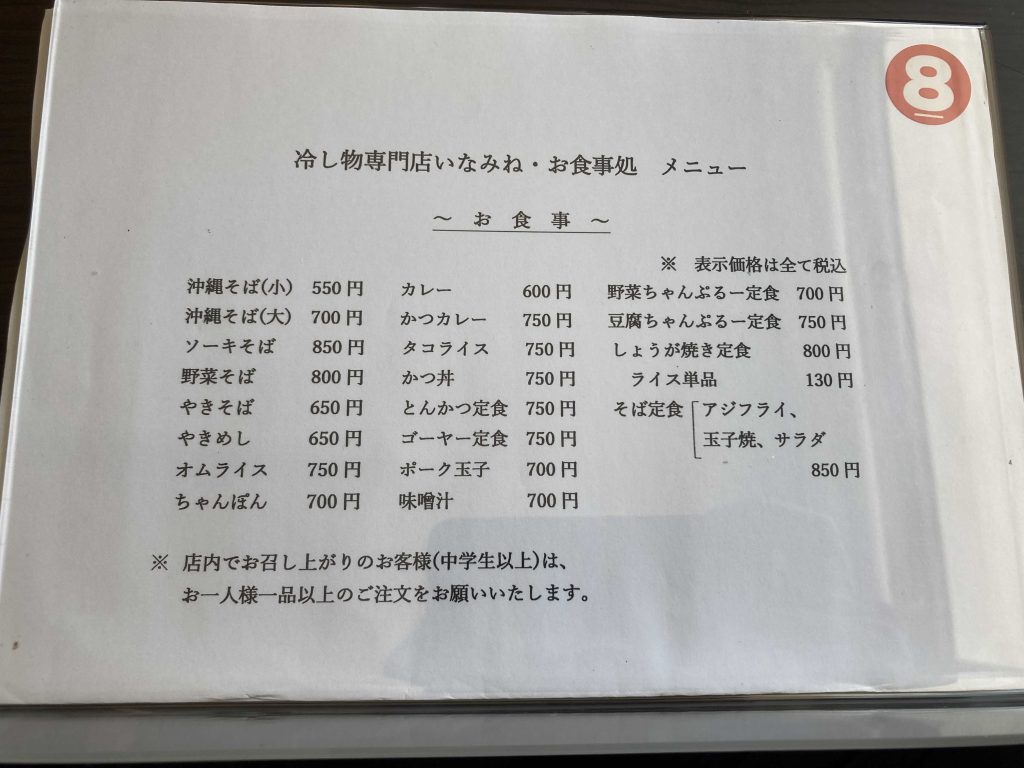 8
冷し物専門店いなみね・お食事処 メニュー
～ お 食 事 ～
※ 表示価格は全て税込
沖縄そば(小) 550円
沖縄そば(大) 700円
ソーキそば 850円
野菜そば 800円
やきそば 650円
やきめし 650円
オムライス 750円
ちゃんぽん 700円
カレー 600円
かつカレー 750円
タコライス 750円
かつ丼 750円
とんかつ定食 750円
ゴーヤー定食 750円
ポーク玉子 700円
味噌汁 700円
野菜ちゃんぷるー定食 700円
豆腐ちゃんぷるー定食 750円
しょうが焼き定食 800円
ライス単品 130円
そば定食 アジフライ、
玉子焼、サラダ
850円
※ 店内でお召し上がりのお客様(中学生以上)は、
お一人様一品以上のご注文をお願いいたします。